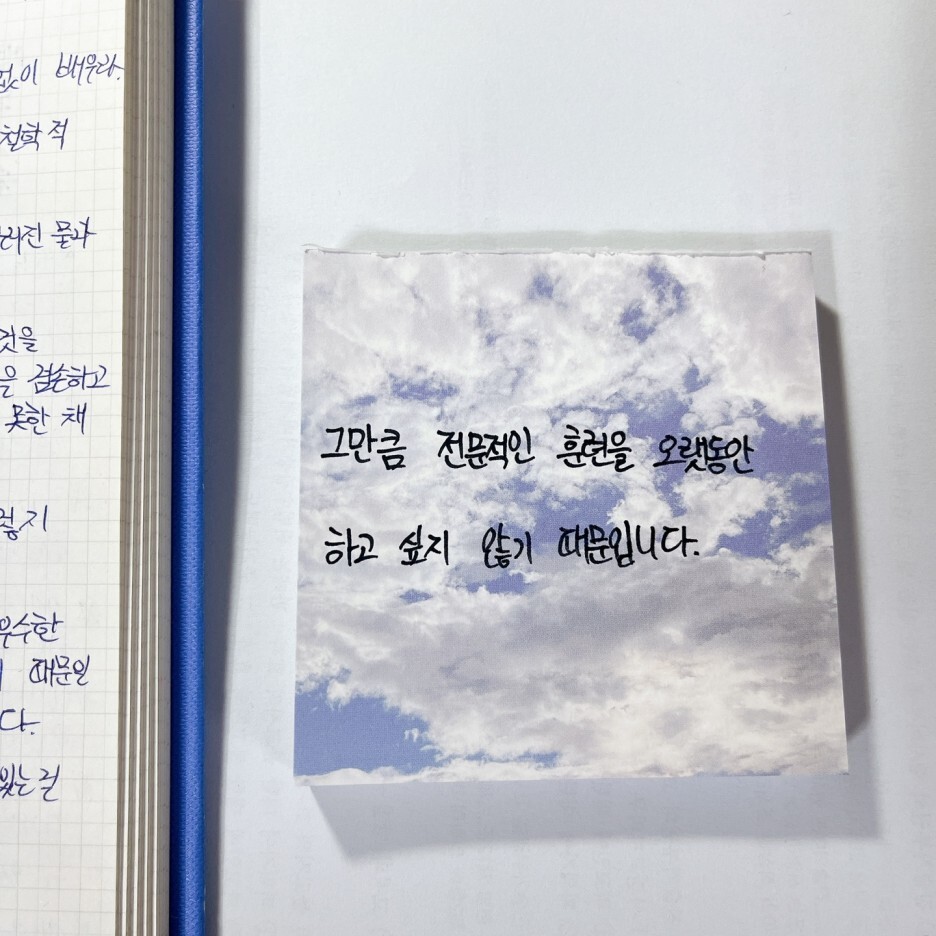 없이 배우라.
철학적
러진 물과
것을
을 겸손하고
못한 채
렇지
우수한
때문일
다.
있는 건
그만큼 전문적인 훈련을 오랫동안
하고 싶지 않기 때문입니다.